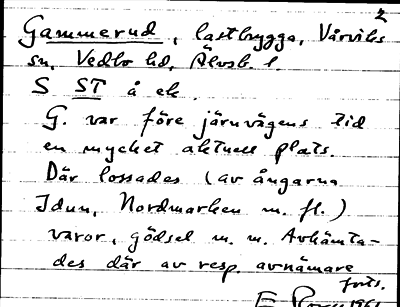 2
Gammerud, lastbrygga, Vårviks
sn, Vedbo hd, Älvsb. l
S ST å ek.
G. var före järnvägens tid
en mycket aktuell plats.
Där lossades (av ångarna
Idun, Nordmarken m. fl.)
varor, gödsel m. m. Avhämta-
des där av resp. avnämare
forts.
1961